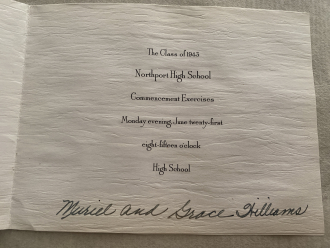 The Class of 1943
Northport High School
Commencement Exercises
Monday evening, June twenty-first
eight-fifteen o'clock
High School
Muriel and Grace Williams